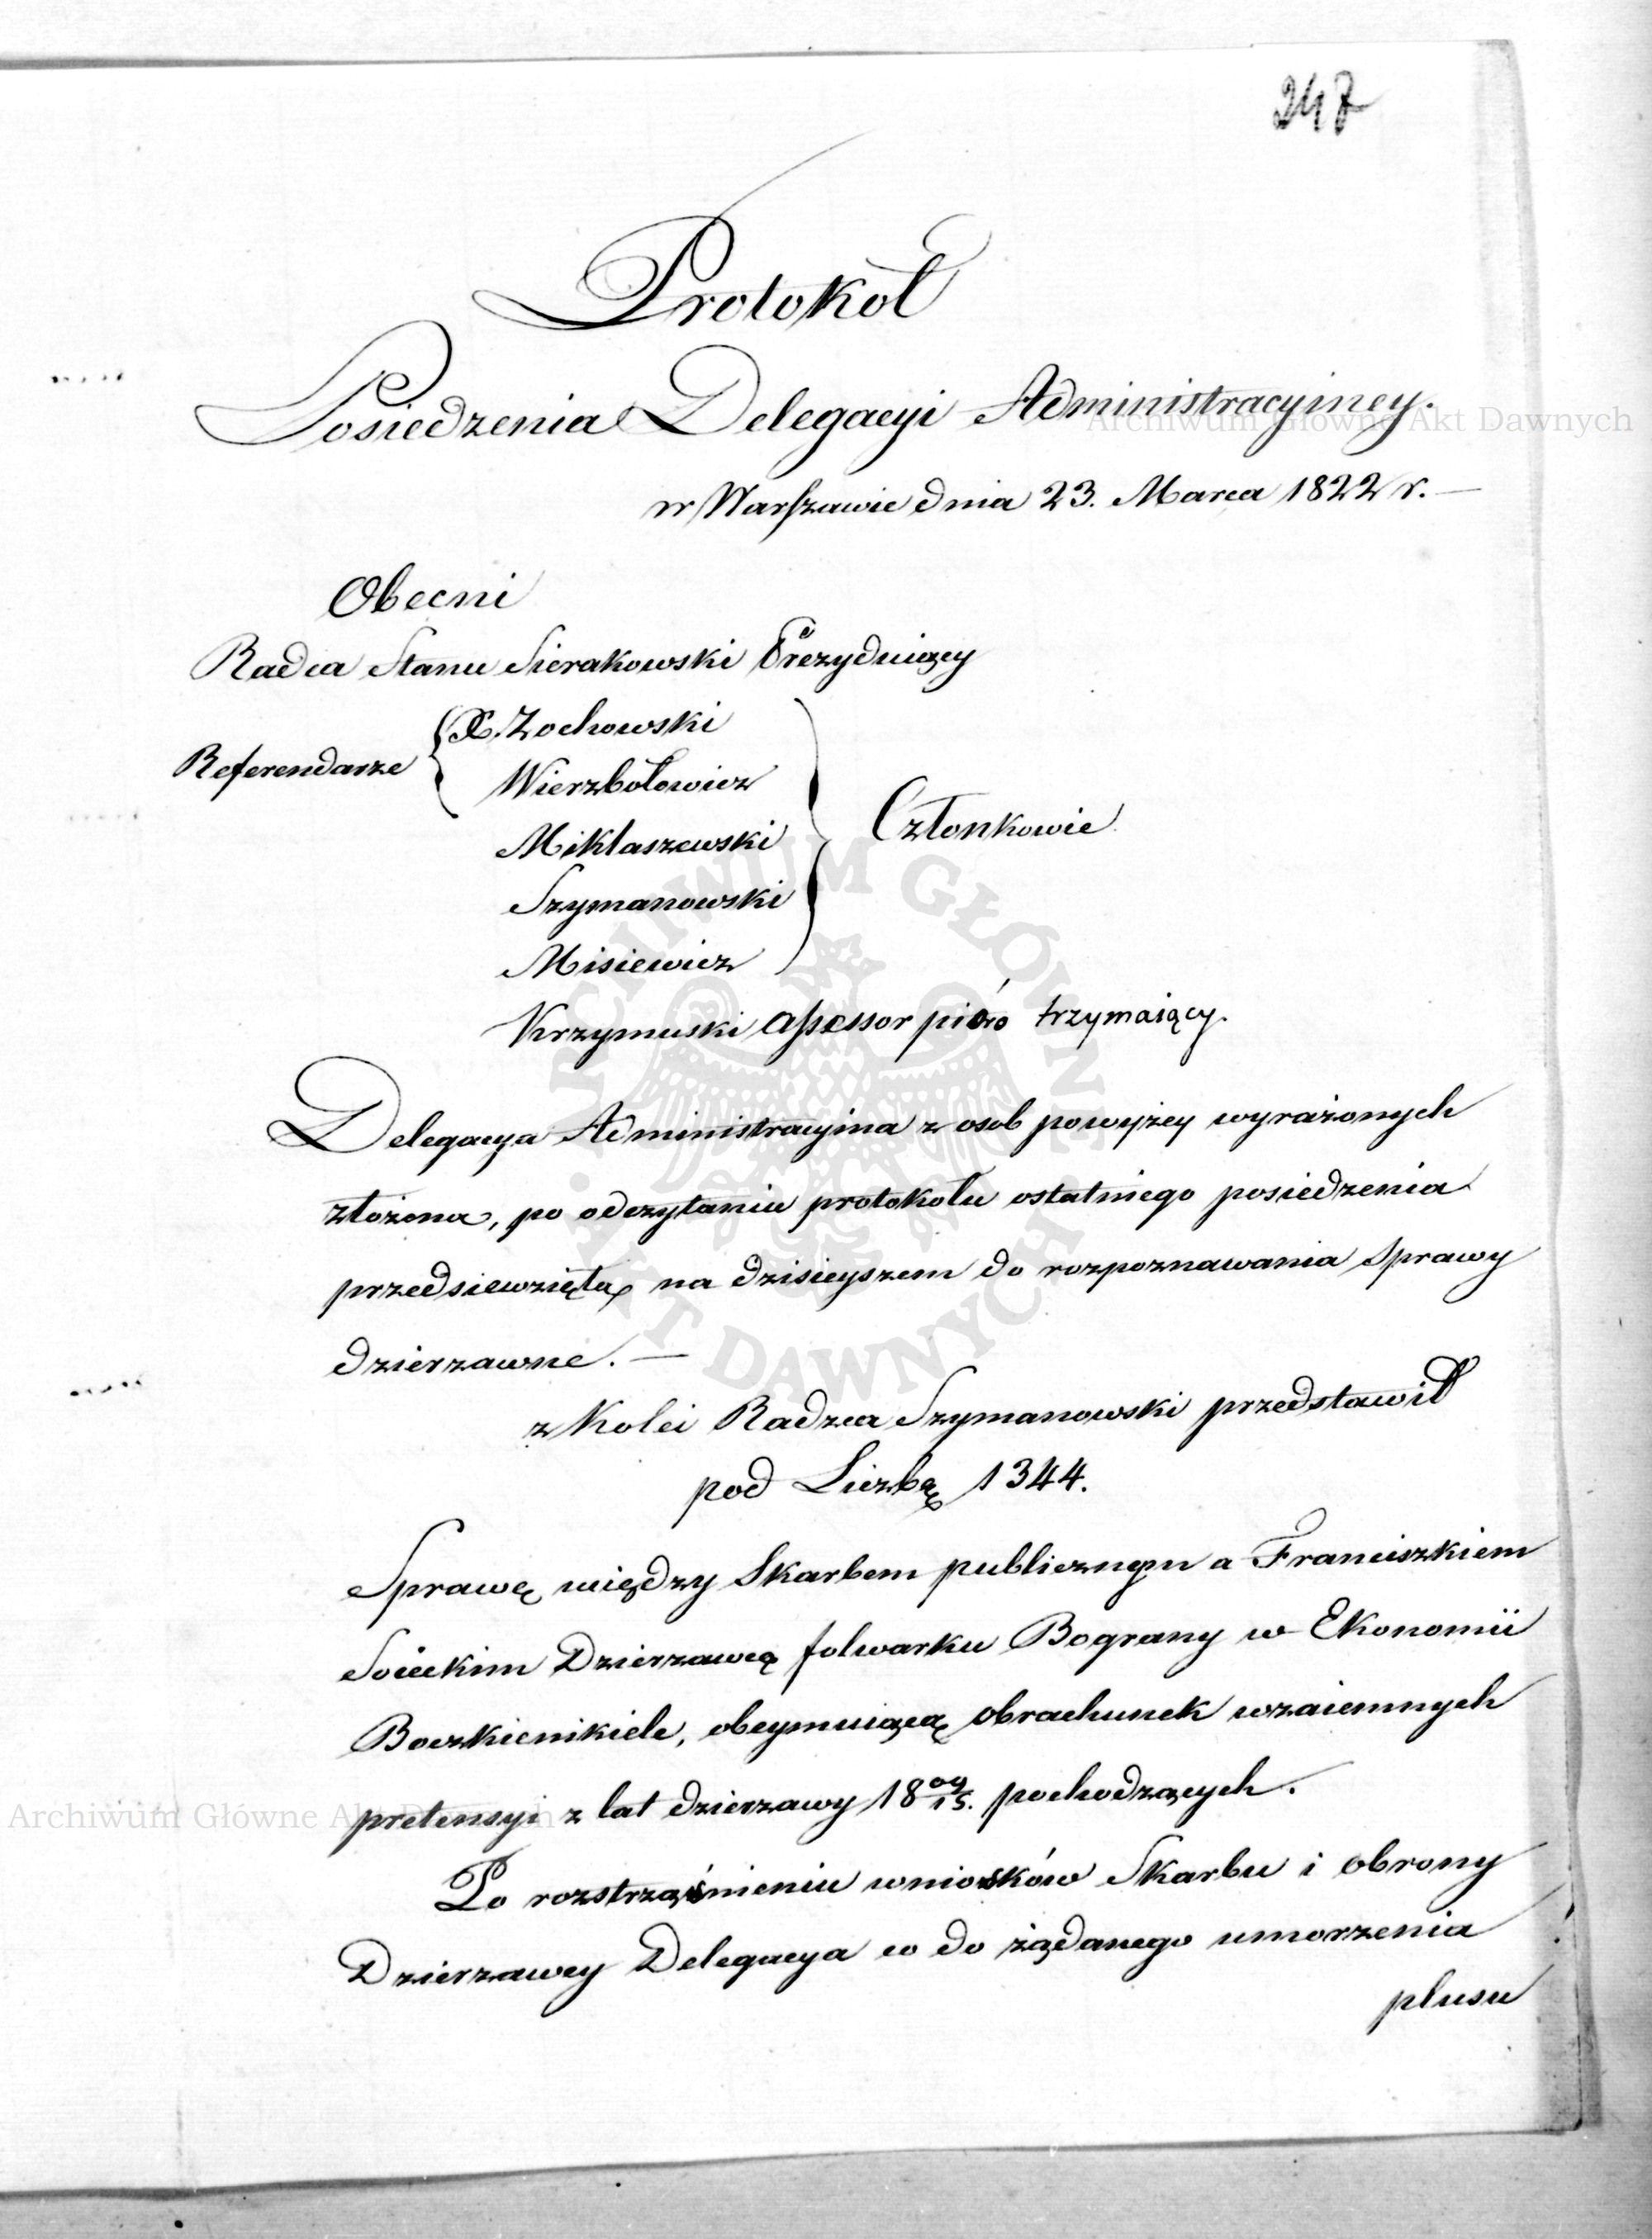 247
Protokoł
Posiedzenia Delegacyi Administracyiney.
w Warszawie dnia 23. Marca 1822 r. —
Obecni
Radca Stanu Sierakowski Prezyduiący
X. Zochowski
Referendarze
Wierzbołowicz
Członkowie
Miklaszewski
Szymanowski
Misiewicz
Krzymuski assessor pióro trzymaiący.
Delegacya Administracyina z osob powyżey wyrażonych
złożona, po odczytaniu protokołu ostatniego posiedzenia
przedsiewzięła na dzisieyszem do rozpoznawania sprawy
dzierzawne. —
z kolei Radzca Szymanowski przedstawił
pod Liczbą 1344.
Sprawę między Skarbem publicznym a Franciszkiem
Dzierzawcą folwarku Bograny w Ekonomii
obeymuiącą obrachunek wzaiemnych
pretensyi z lat dzierzawy 18 09/15. pochodzących.
Po rozstrząśnieniu wniosków Skarbu i obrony
Dzierzawcy Delegacya co do żądanego umorzenia
plusu
Archiwum Główne Akt Dawnych
Archiwum Główne Akt Dawnych
ARCHIWUM GŁÓWNE AKT DAWNYCH